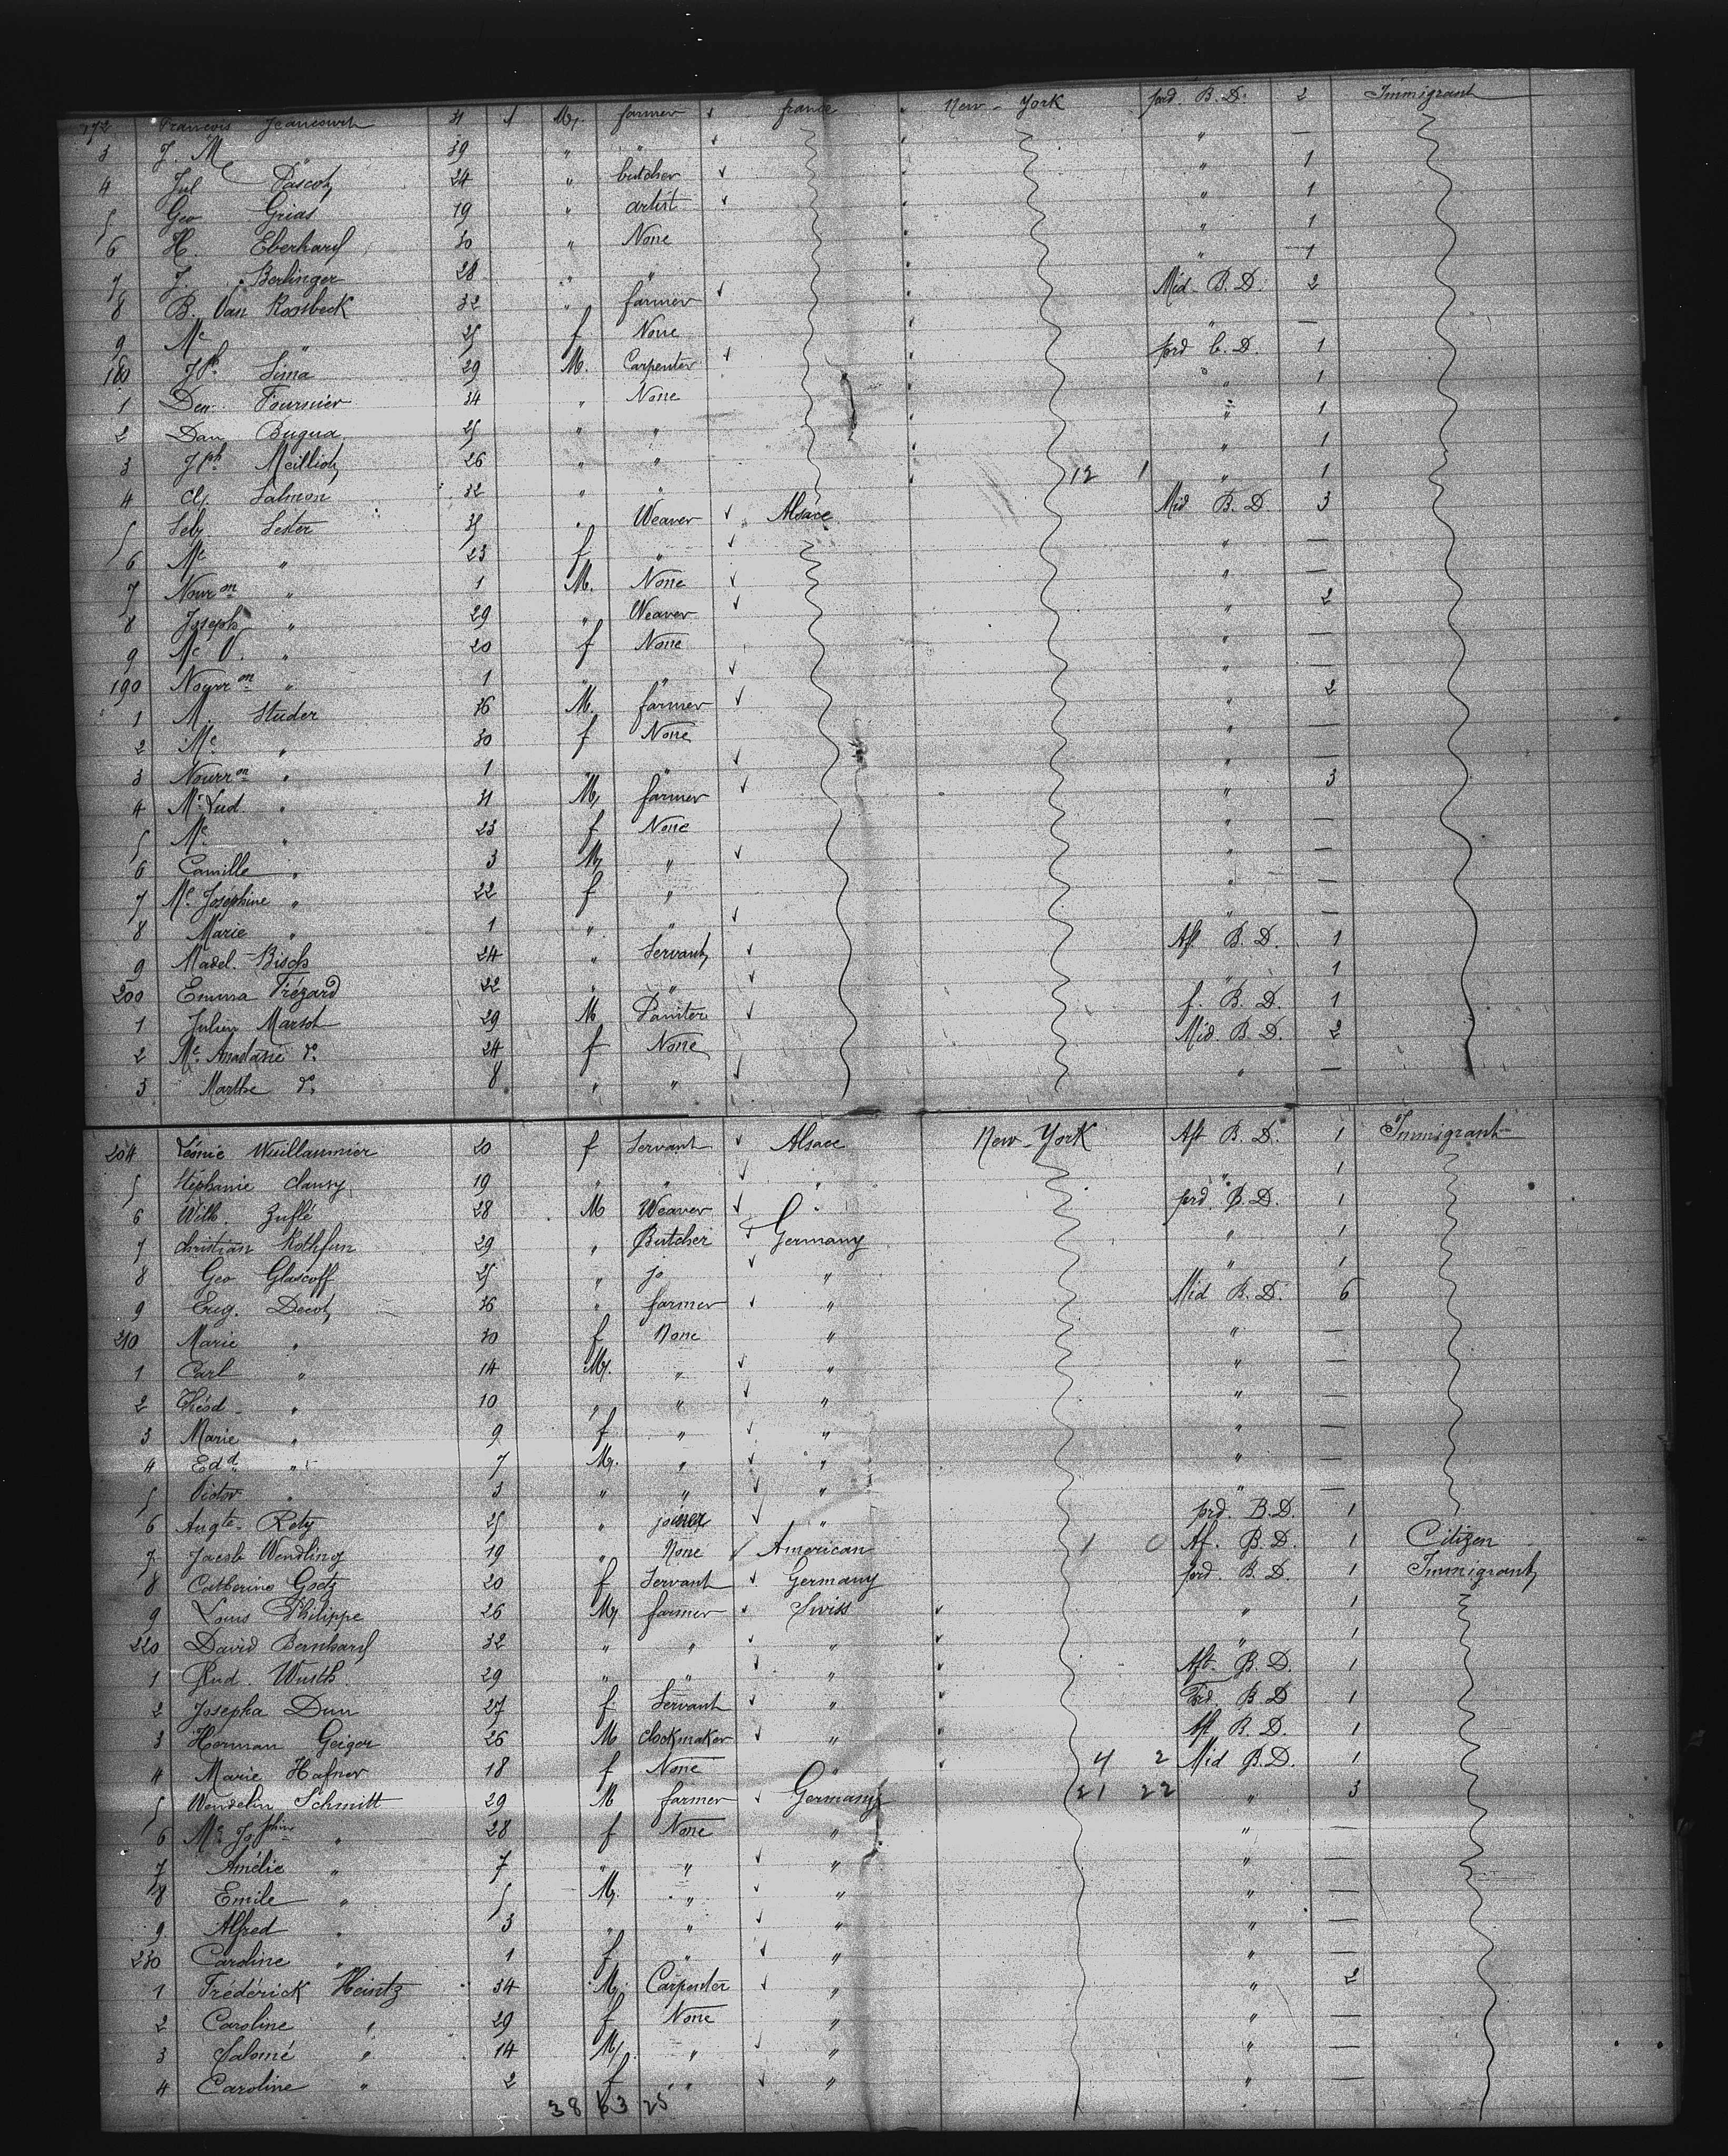 172 31 M. farmer france New-York ford. B.D. 2 Immigrant
3 J. M " 39 " " " —
4 Jul 24 " butcher " 1
5 Geo Grias 19 " artist " 1
6 H. Eberhard 30 " None " 1
7 J. Berlinger 28 " " " 1
8 B. Van Roosbeck 32 " farmer Mid. B.D. 2
9 Me " 25 f None " —
180 Jph Sima 29 M. Carpenter ford B.D. 1
1 Den. Fournier 34 " None " 1
2 Dan Bugua 25 " " " 1
3 Jph 26 " " " 1
4 Salmon 32 " " 12 1 " 1
5 Seb. Sester 35 " Weaver Alsace Mid B.D. 3
6 Me " 23 f " " —
7 Nourron " 1 M. None " —
8 Joseph " 29 " Weaver " 2
9 Me V. " 20 f None " —
190 Nourron " 1 " " " —
1 M. Studer 36 M. farmer " 2
2 Me " 30 f None " —
3 Nourron " 1 " " " —
4 Mr Lud. " 31 M. farmer " 3
5 Me " 23 f None " —
6 Camille " 3 M. " " —
7 Me Josephine " 22 f " " —
8 Marie " 1 " " " —
9 Madel. Bisch 24 " Servant Aft. B.D. 1
200 Emma Frézard 22 " " " 1
1 Julien Marsot 29 M Painter f. B.D. 1
2 Me Anastasie do 24 f None Mid. B.D. 2
3 Marthe do 8 " " " —
204 Léonie Wuillaumier 20 f Servant Alsace New-York Aft B.D. 1 Immigrant
5 Stéphanie Clausy 19 " " " " 1
6 Wilh. Zuflé 28 M Weaver " ford. B.D. 1
7 Christian Rothfun 29 " Butcher Germany " 1
8 Geo Glascoff 25 " do " " 1
9 Eug. Decot 36 " farmer " Mid B.D. 6
210 Marie " 30 f None " " —
1 Carl " 14 M. " " " —
2 " 10 " " " " —
3 Marie " 9 f " " " —
4 Edd " 7 M. " " " —
5 Victor " 3 " " " " —
6 Augte. Rety 25 " joiner " ford. B.D. 1
7 Jacob Wendling 19 " None American 1 0 Af. B.D. 1 Citizen
8 Catherine Goetz 20 f Servant Germany ford. B.D. 1 Immigrant
9 Louis Philippe 26 M. farmer Swiss " 1
220 David Bernhard 32 " " " " 1
1 Rud. Wurth 29 " " " Aft. B.D. 1
2 Josepha Dun 27 f Servant " Ford. B.D 1
3 Herman Geiger 26 M Clockmaker " Aft B.D. 1
4 Marie Hafner 18 f None " 4 2 Mid B.D. 1
5 Wendelin Schmitt 29 M farmer Germany 21 22 " 3
6 Me Josphine " 28 f None " " —
7 Amélie " 7 " " " " —
8 Emile " 5 M. " " " —
9 Alfred " 3 " " " " —
230 Caroline " 1 f " " " —
1 Fréderick Heintz 34 M. Carpenter " " 2
2 Caroline " 29 f None " " —
3 Salomé " 14 M. " " " —
4 Caroline " 2 f " " " —
38 63 25